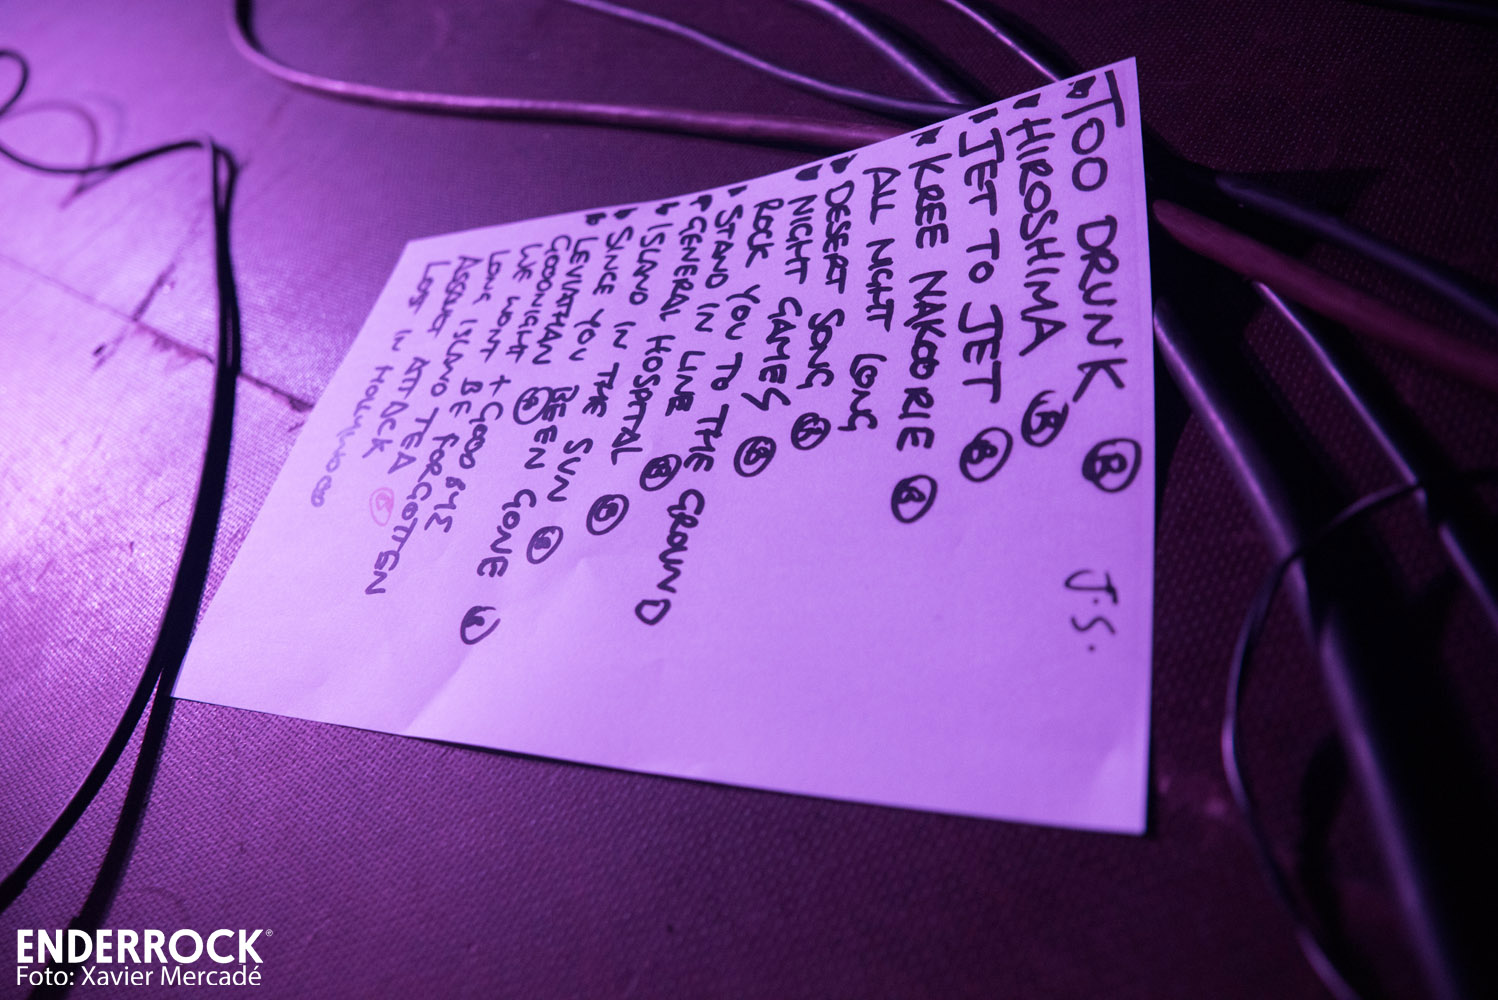 TOO DRUNK J.S.
HIROSHIMA
JET TO JET
KREE NAKOORIE
ALL NIGHT LONG
DESERT SONG
NIGHT GAMES
ROCK YOU TO THE GROUND
STAND IN LINE
GENERAL HOSPITAL
ISLAND IN THE SUN
SINCE YOU BEEN GONE
LEVIATHAN
GOODNIGHT + GOOD BYE
WE WONT BE FORGOTTEN
LOVE IS
ASSAULT ATTACK
LOST IN HOLLYWOOD
ENDERROCK®
Foto: Xavier Mercadé